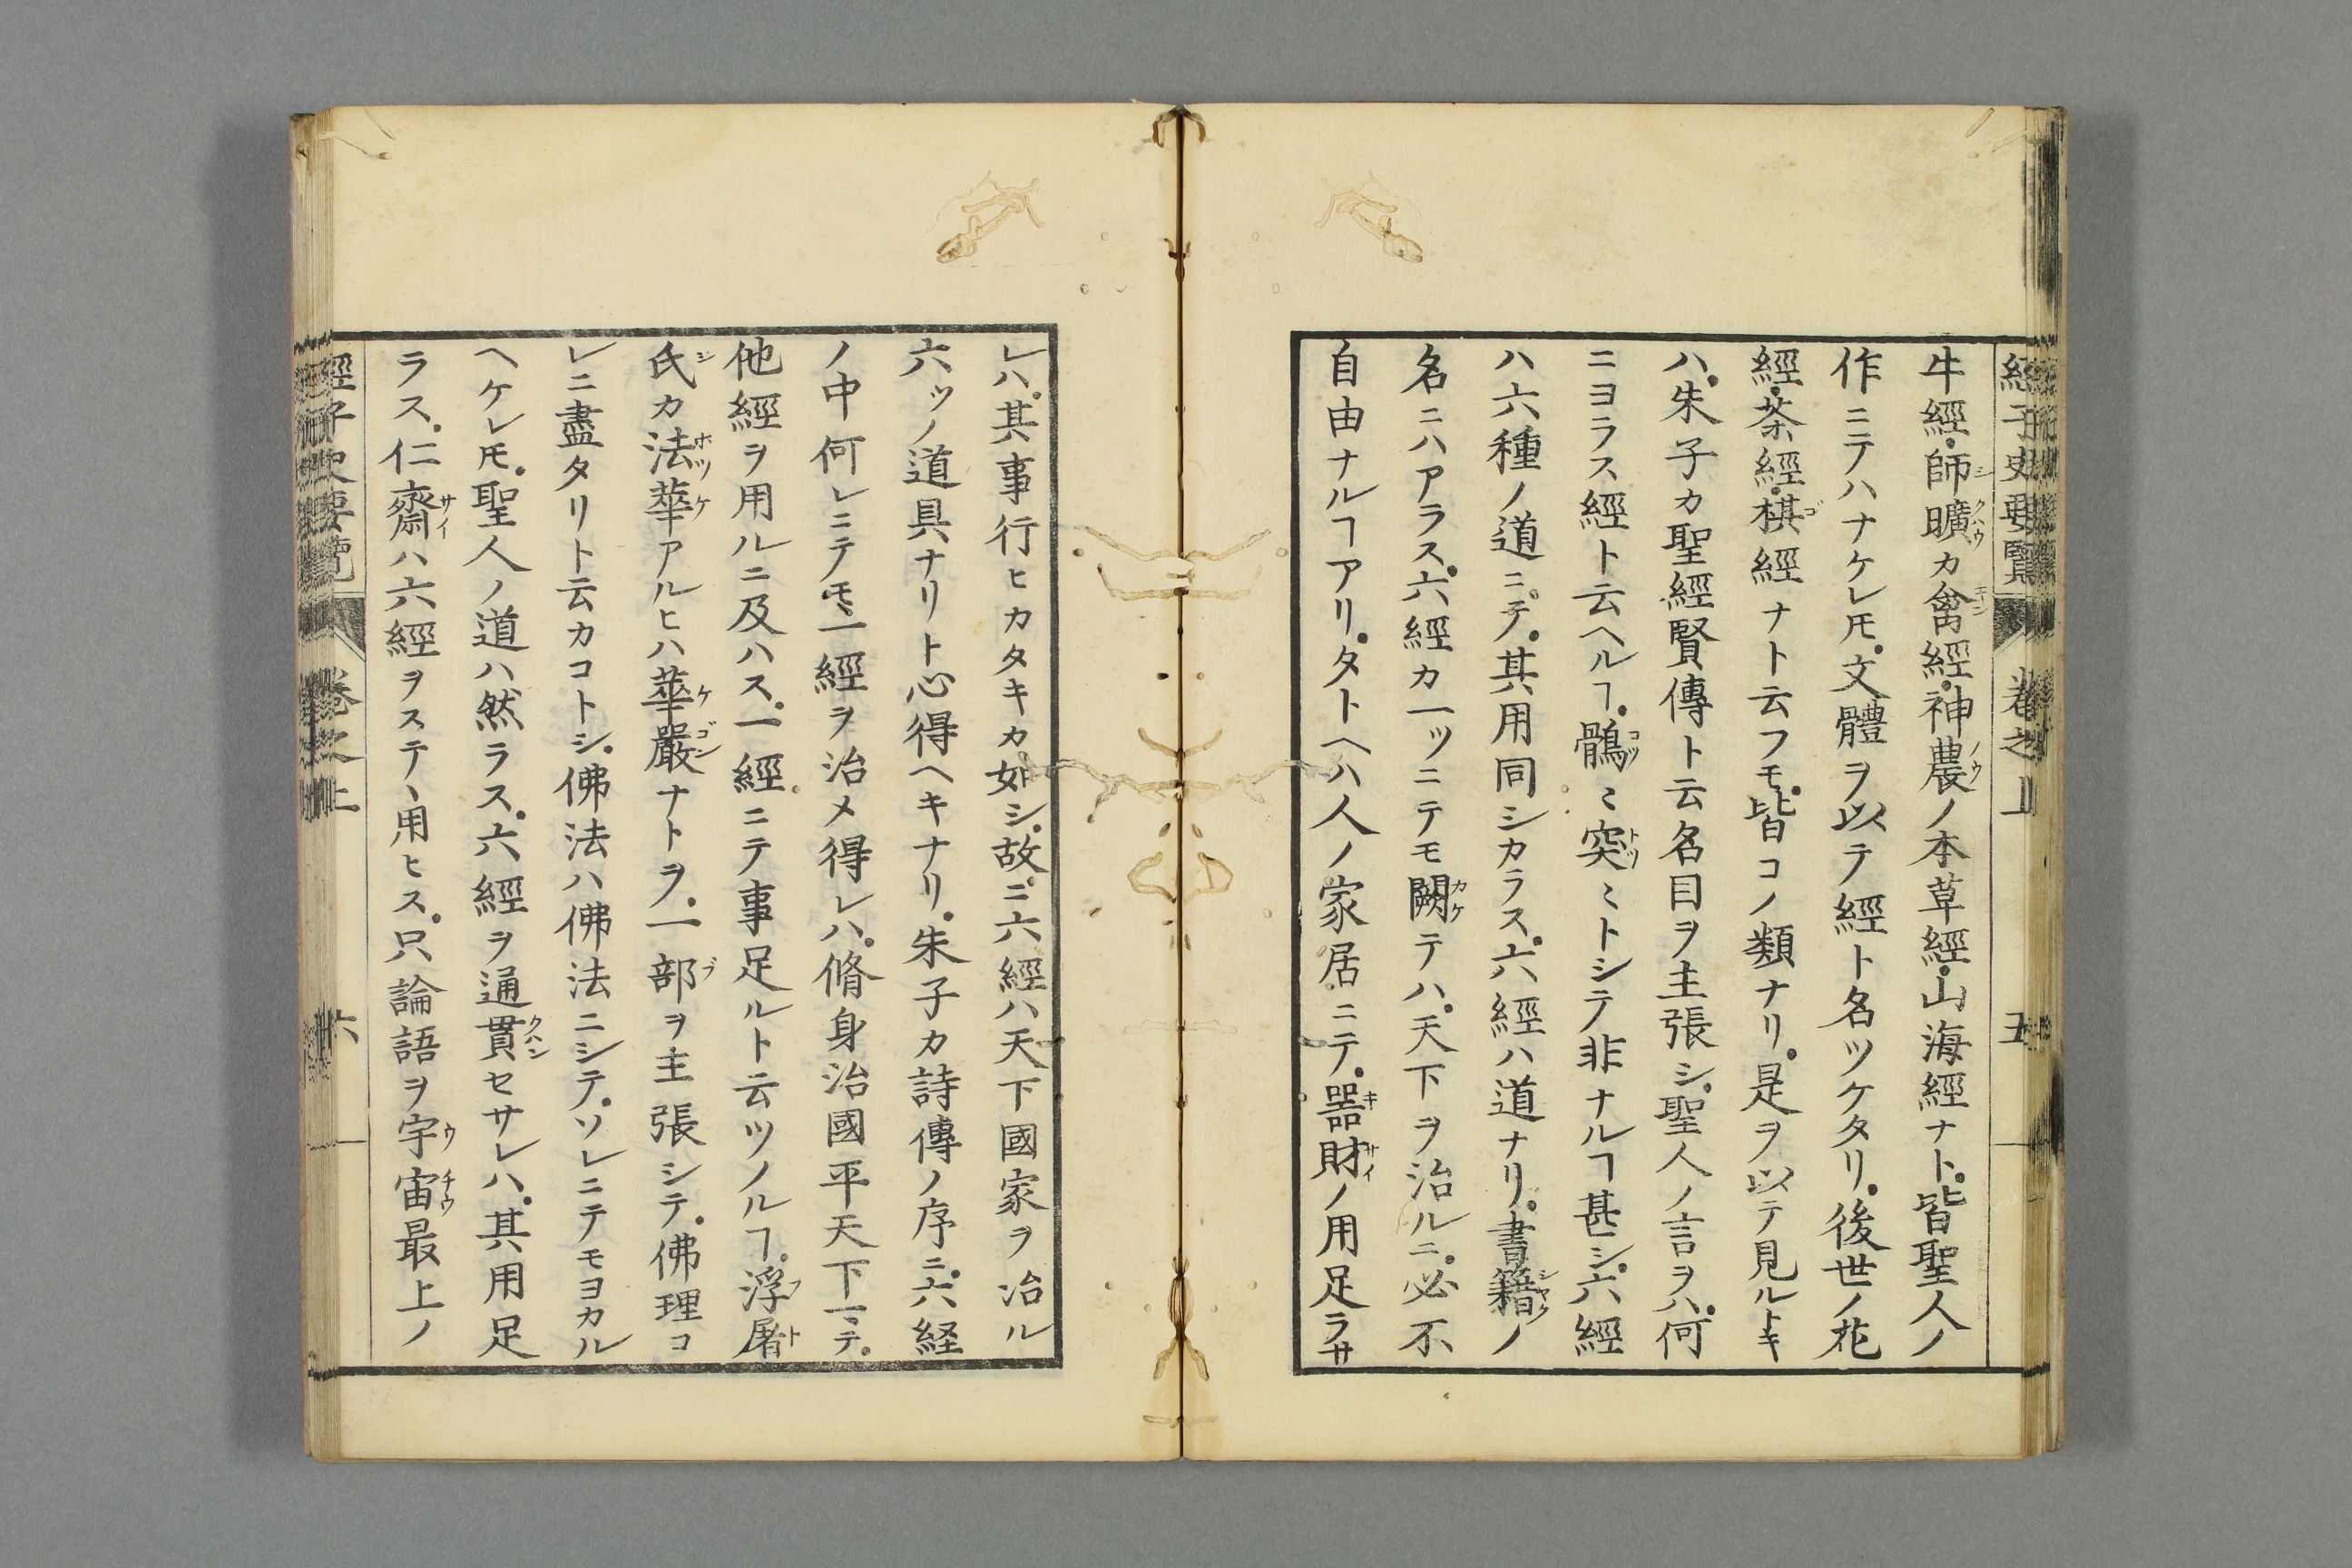 經子史要覽 卷之上 五
牛經・師曠カ禽經・神農ノ本草經・山海經ナト。皆聖人ノ
作ニテハナケレ𪜈。文體ヲ以テ經ト名ツケタリ。後世ノ花
經・茶經・棋經ナト云フモ。皆コノ類ナリ。是ヲ以テ見ルトキ
ハ。朱子カ聖經賢傳ト云名目ヲ主張シ。聖人ノ言ヲハ。何
ニヨラス經ト云ヘルヿ。鶻〻突〻トシテ非ナルヿ甚シ。六經
ハ六種ノ道ニテ。其用同シカラス。六經ハ道ナリ。書籍ノ
名ニハアラス。六經カ一ツニテモ闕テハ。天下ヲ治ルニ。必不
自由ナルヿアリ。タトヘハ人ノ家居ニテ。器財ノ用足ラサ
レハ。其事行ヒカタキカ如シ。故ニ六經ハ天下國家ヲ治ル
六ツノ道具ナリト心得ヘキナリ。朱子カ詩傳ノ序ニ。六経
ノ中何レニテモ。一經ヲ治メ得レハ。脩身治國平天下マテ。
他經ヲ用ルニ及ハス。一經ニテ事足ルト云ツノルヿ。浮屠
氏カ法華アルヒハ華嚴ナトヲ。一部ヲ主張シテ。佛理コ
レニ盡タリト云カコトシ。佛法ハ佛法ニシテ。ソレニテモヨカル
ヘケレ𪜈。聖人ノ道ハ然ラス。六經ヲ通貫セサレハ。其用足
ラス。仁齋ハ六經ヲステヽ用ヒス。只論語ヲ宇宙最上ノ
經子史要覽 卷之上 六